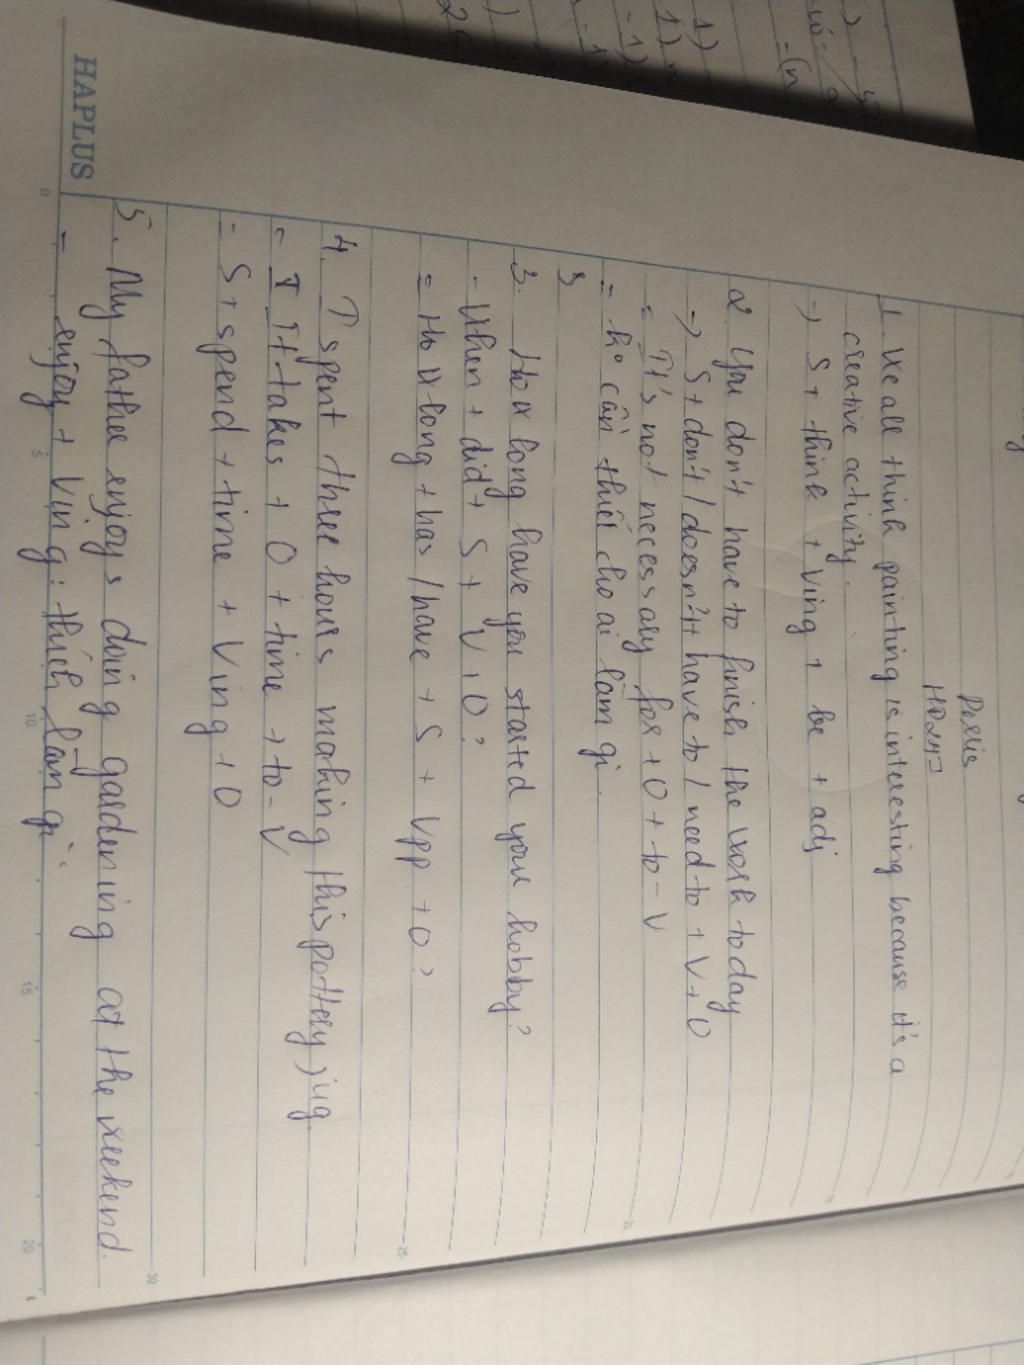 1. We all think painting is interesting because it's a
creative activity.
→ S + think + Ving + be + adj
2. You don't have to finish the work today
→ S + don't / doesn't + have to / need to + V + O
= It's not necessary for + O + to - V
= ko cần thiết cho ai làm gì
3
3. How long have you started your hobby?
- When + did + S + V + O?
= How long + has / have + S + Vpp + O?
4. I spent three hours making this pottery jug
= I It takes + O + time + to - V
= S + spend + time + Ving + O
5. My father enjoys doing gardening at the weekend.
- enjoy + Ving: thích làm gì.
HAPLUS
0 5 10 15 20
20
25
30